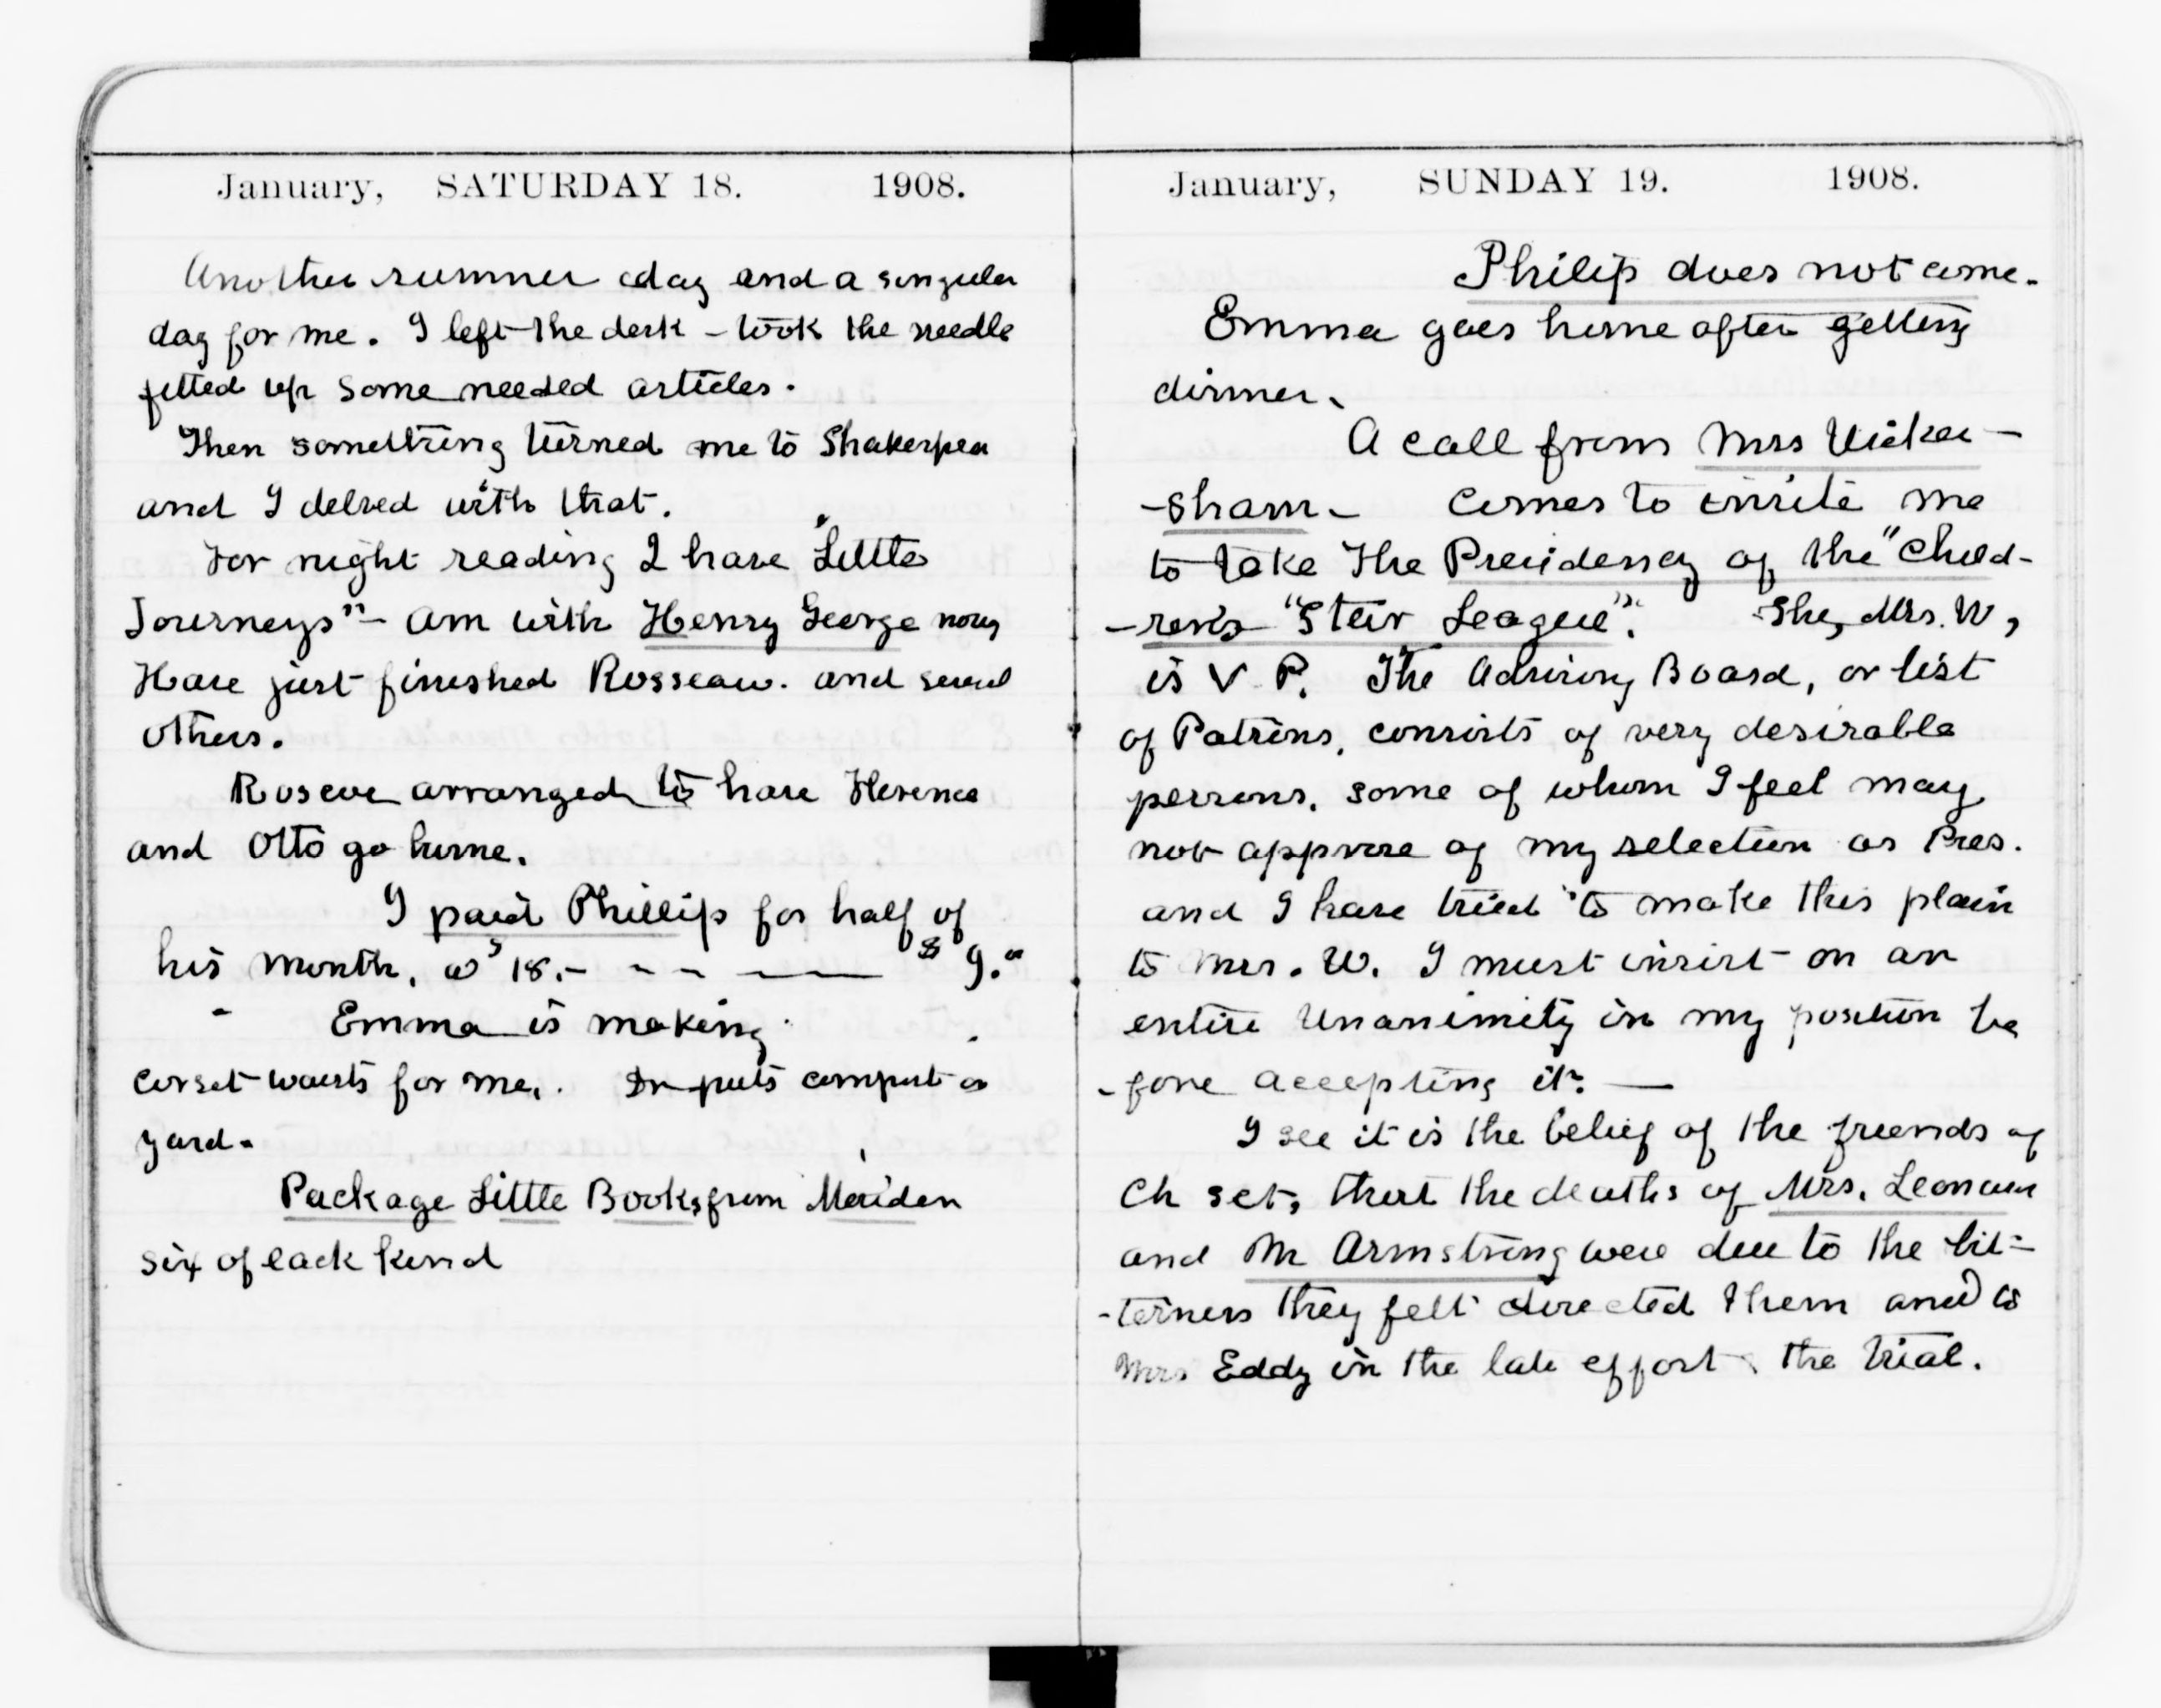 January, SATURDAY 18. 1908.
Another summer day and a singular
day for me. I left the desk – took the needle
fitted up some needed articles.
Then something turned me to Shakerpea
and I delved with that.
For night reading I have "Little
Journeys" – am with Henry George now
Have just finished Rosseau. and several
others.
Roscoe arranged to have Florence
and Otto go home.
I paid Phillip for half of
his month, @ $18. – – – — $9.00
Emma is making
corset waists for me. Dr puts compost on
yard.
Package Little Books from Meriden
six of each kind
January, SUNDAY 19. 1908.
Philip does not come.
Emma goes home after getting
dinner.
A call from Mrs Wicker–
–sham – comes to invite me
to take the Presidency of the "Child–
–ren's "Star League". She, Mrs. W,
is V. P. The Advisory Board, or list
of Patrons, consists of very desirable
persons, some of whom I feel may
not approve of my selection as Pres.
and I have tried to make this plain
to Mrs. W. I must insist on an
entire unanimity in my position be
–fore accepting it. —
I see it is the belief of the friends of
Ch sct, that the deaths of Mrs. Leonard
and Mr Armstrong were due to the bit–
–terness they felt directed them and to
Mrs Eddy in the late effort, the trial.